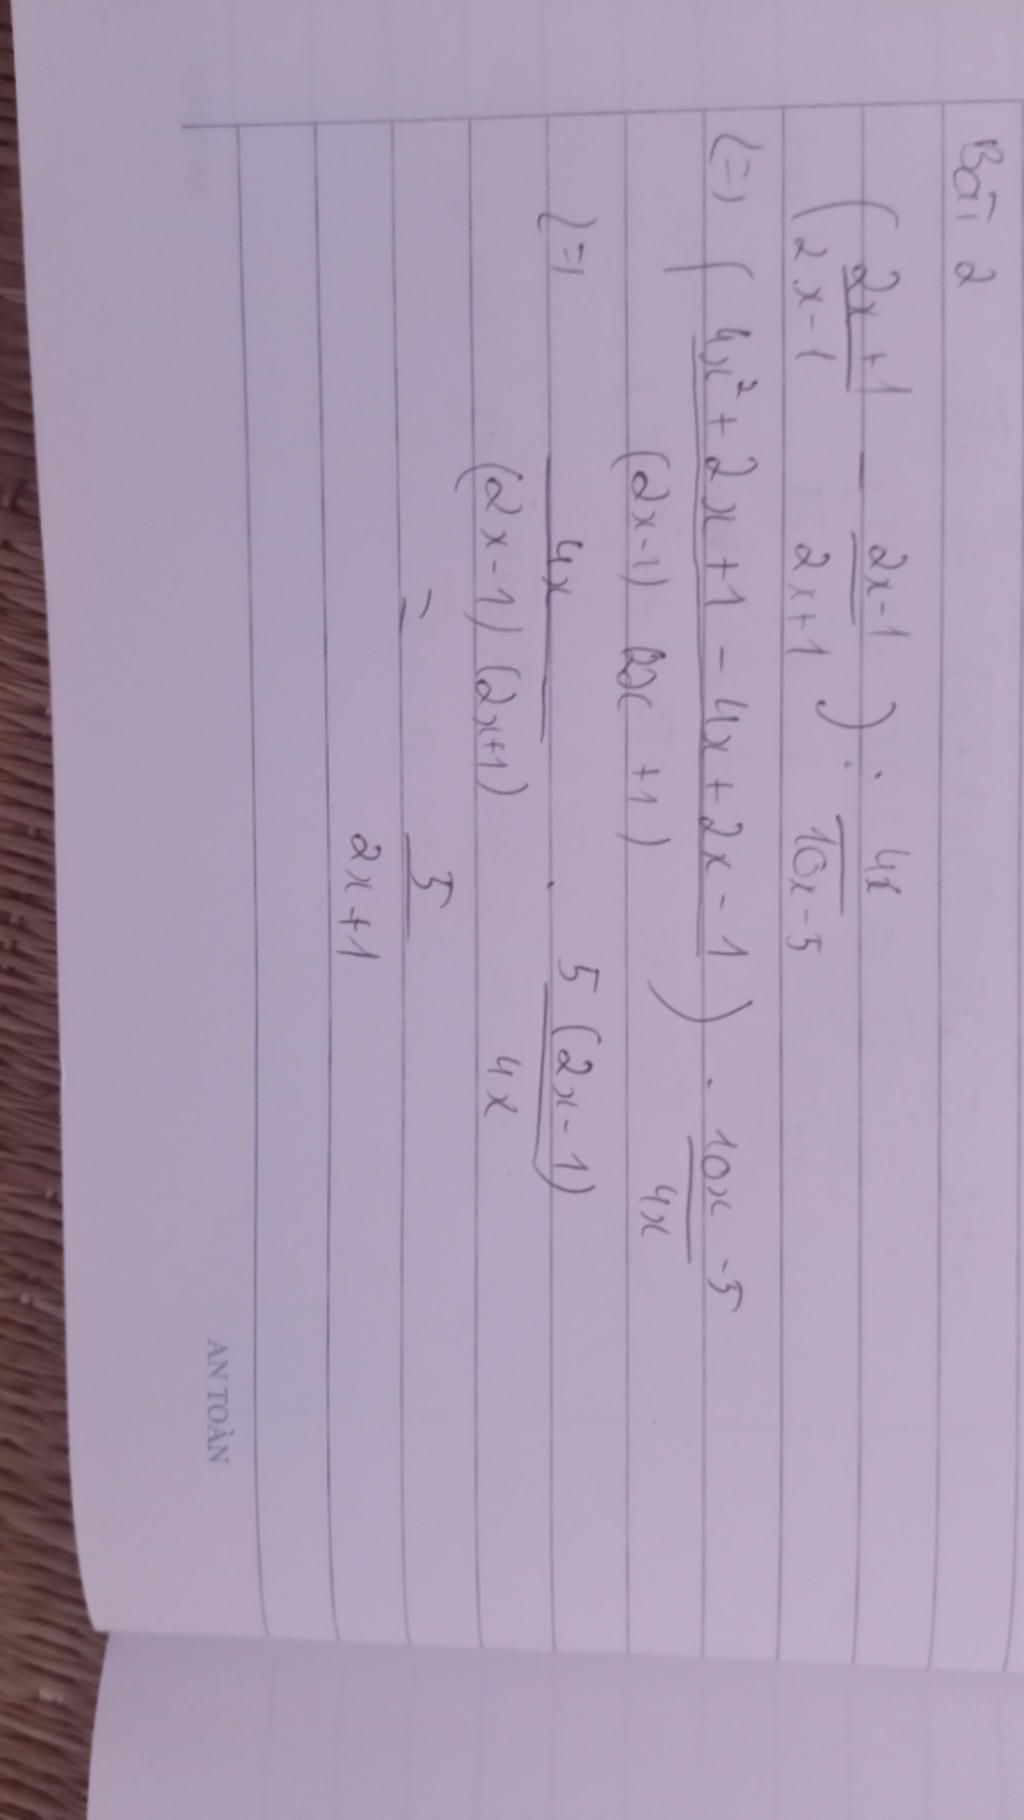 Bài 2
( 2x+1 / 2x-1 - 2x-1 / 2x+1 ) : 4x / 10x-5
(=) ( 4x² + 2x + 1 - 4x + 2x - 1 / (2x-1) (2x +1) ) . 10x -5 / 4x
(=) 4x / (2x-1) (2x+1) . 5 (2x-1) / 4x
= 5 / 2x+1
AN TOÀN